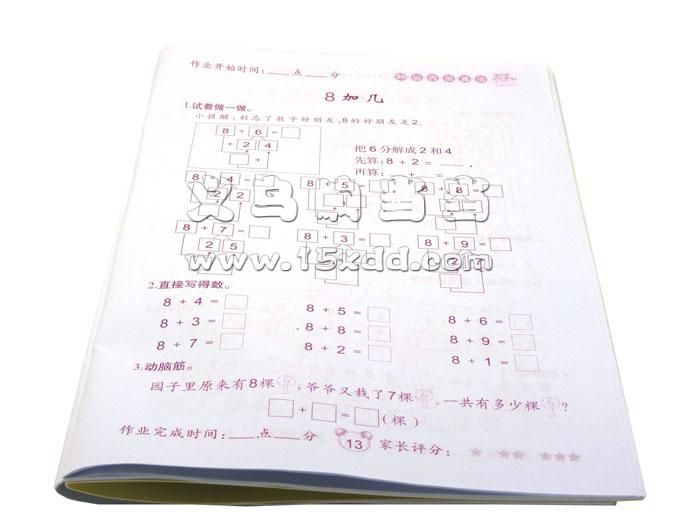 作业开始时间：___点___分
8加几
1.试着做一做。
小提醒：别忘了数字好朋友，8的好朋友是2。
8 + 6 = □
+ 2 4
□ +
把6分解成2和4
先算：8 + 2 = ___ .
再算：__ + __ = ___
8 + 4 = □ 8 + 5 = □ 8 + 8 = □
2 2
义乌 当当
8 + 7 = □ 8 + 3 = □ 8 + 9 = □
2 5
www.15xdd.com
2.直接写得数。
8 + 4 = □ 8 + 5 = □ 8 + 6 = □
8 + 3 = □ 8 + 8 = □ 8 + 9 = □
8 + 7 = □ 8 + 2 = □ 8 + 1 = □
3.动脑筋。
园子里原来有8棵，爷爷又栽了7棵，一共有多少棵？
□ + □ = □（棵）
作业完成时间：___点___分 13 家长评分： ★ ★★ ★★★